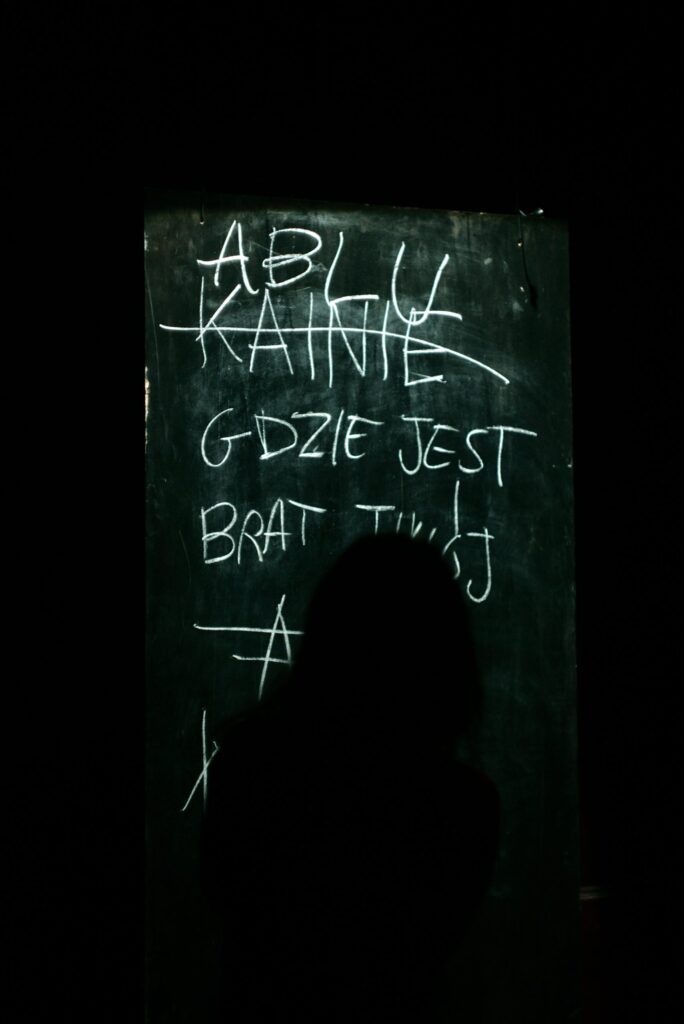 ABLU
KAINIE
GDZIE JEST
BRAT TWÓJ